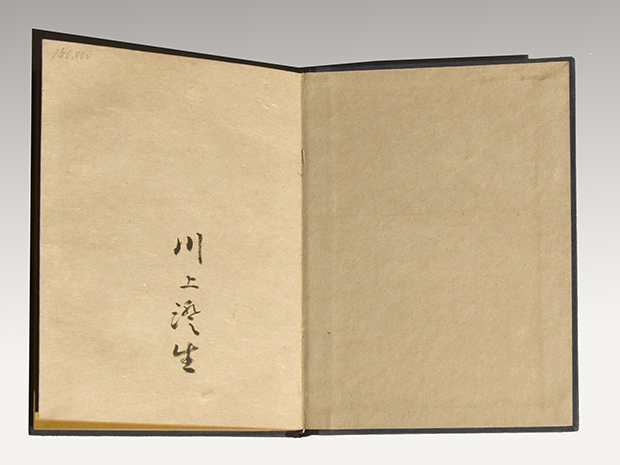 150,000
川上澄生